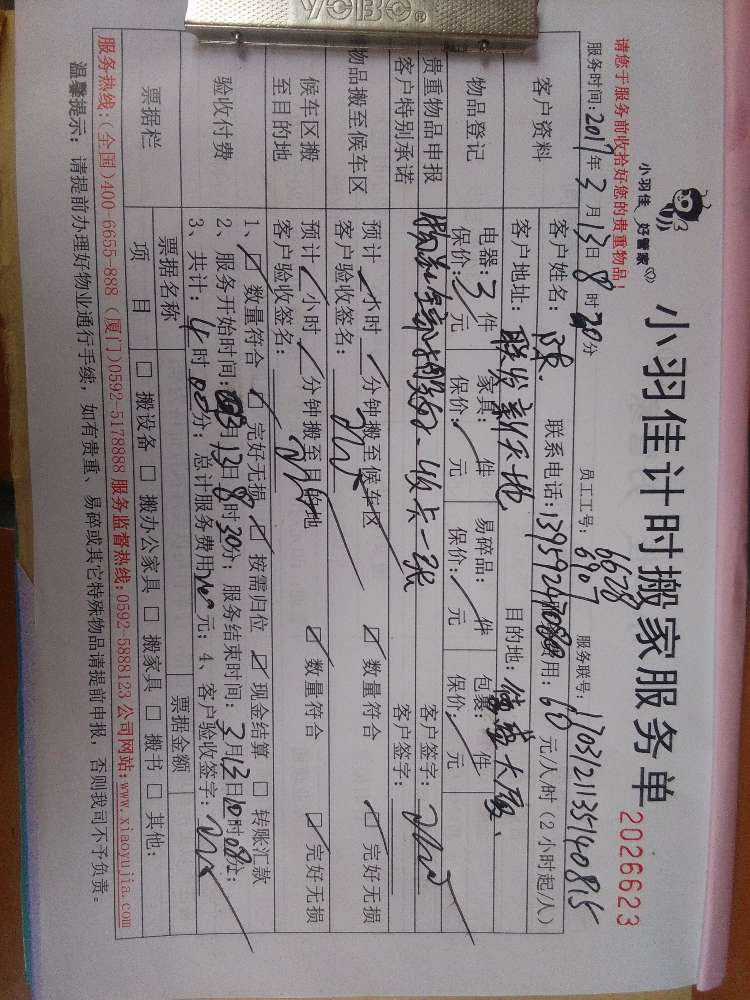 YOBO®
小羽佳 好管家
小羽佳计时搬家服务单
2026623
请您于服务前收拾好您的贵重物品！
员工工号：6678
6907
服务联号：170312113514 0815
服务时间：2017年3月13日8时30分
客户资料
客户姓名：
联系电话：
费用：60元/人/时（2小时起/人）
客户地址：联发新天地
目的地：
物品登记
电器：3件
家具：/件
易碎品：/件
包裹：/件
保价：/元
保价：/元
保价：/元
保价：/元
贵重物品申报
客户签字：
客户特别承诺
客户签字：
物品搬至候车区
预计/小时/分钟搬至候车区
☑数量符合
☑完好无损
客户验收签名：
候车区搬至目的地
预计/小时/分钟搬至目的地
☑数量符合
☑完好无损
客户验收签名：
验收付费
1、☑数量符合 ☑完好无损 ☑按需归位 ☑现金结算 □转账汇款
2、服务开始时间：3月13日8时30分；服务结束时间：3月13日10时08分；
3、共计：4时00分；总计服务费用240元；4、客户验收签字：
票据栏
票据名称
票据金额
项目
□搬设备 □搬办公家具 □搬家具 □搬书 □其他：
服务热线：(全国)400-6655-888 (厦门)0592-5178888 服务监督热线:0592-5888123 公司网站:www.xiaoyujia.com
温馨提示：请提前办理好物业通行手续，如有贵重、易碎或其它特殊物品请提前申报，否则我司不予负责。